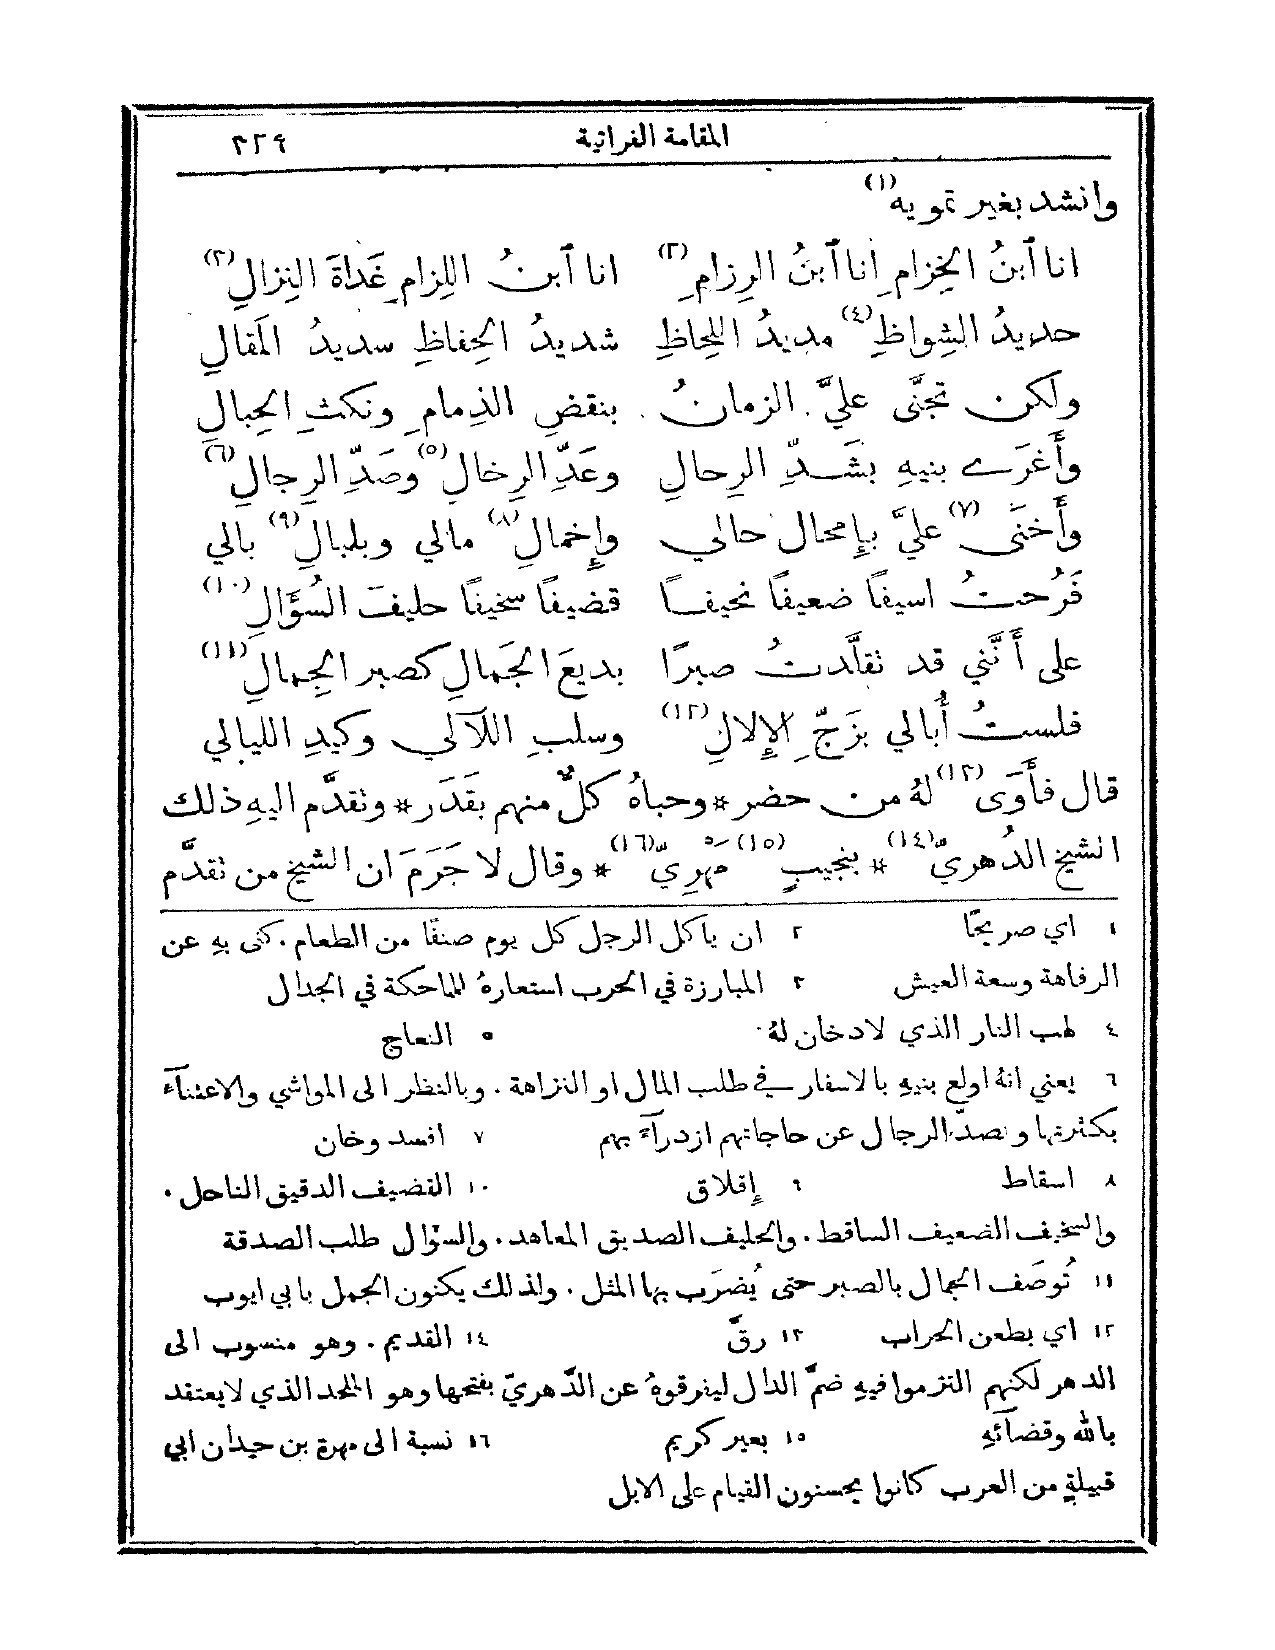 المقامة الفراتية ٣٢٩
وانشد بغير تمويه(١)
انا ٱبنُ الخِزامِ انا ٱبنُ الرِزامِ(٢) انا ٱبنُ اللِزامِ غَداةَ النِزالِ(٣)
حديدُ الشِواظِ(٤) مديدُ اللِحاظِ شديدُ الحِفاظِ سديدُ المَقالِ
ولكن تجنَّى عليَّ الزمانُ بنقضِ الذِمامِ ونكثِ الحِبالِ
وأَغرَى بنيهِ بشَدِّ الرِحالِ وعَدِّ الرِخالِ(٥) وصَدِّ الرِجالِ(٦)
وأَخنَى(٧) عليَّ بإِمحال حالي وإِخمالِ(٨) مالي وبلبالِ(٩) بالي
فَرُحتُ اسيفًا ضعيفًا نحيفًا قضيفًا سخيفًا حليفَ السُؤَالِ(١٠)
على أَنَّني قد نقلَّدتُ صبرًا بديعَ الجَمالِ كصبر الجِمالِ(١١)
فلستُ أُبالي بزَجِّ الإِلالِ(١٢) وسلبِ اللآلي وكيدِ الليالي
قال فأَوَى(١٣) لهُ من حضر * وحباهُ كلٌّ منهم بقَدَر * ونقدَّم اليهِ ذلك
الشيخ الدُهريّ(١٤) * بنجيبٍ(١٥) مهرِيّ(١٦) * وقال لا جَرَمَ ان الشيخ من نقدَّم
١ اي صريحًا ٢ ان ياكل الرجل كل يوم صنفًا من الطعام . كنى بهِ عن
الرفاهة وسعة العيش ٣ المبارزة في الحرب استعارهُ للماحكة في الجدال
٤ لهب النار الذي لا دخان لهُ ٥ النعاج
٦ يعني انهُ اولع بنيهِ بالاسفار في طلب المال او النزاهة . وبالنظر الى المواشي والاعتناءَ
بكثرتها وبصدّ الرجال عن حاجاتهم ازدرآءً بهم ٧ افسد وخان
٨ اسقاط ٩ إِقلاق ١٠ القضيف الدقيق الناحل .
والسخيف الضعيف الساقط . والحليف الصديق المعاهد . والسوَّال طلب الصدقة
١١ تُوصَف الجمال بالصبر حتى يُضرَب بها المثل . ولذلك يكنون الجمل بابي ايوب
١٢ اي بطعن الحراب ١٣ رقَّ ١٤ القديم . وهو منسوب الى
الدهر لكنهم التزموا فيهِ ضمَّ الدال ليفرقوهُ عن الدَّهريّ بفتحها وهو الملحد الذي لا يعتقد
بالله وقضآئهِ ١٥ بعير كريم ١٦ نسبة الى مهرة بن حيدان ابي
قبيلةٍ من العرب كانوا يحسنون القيام على الابل